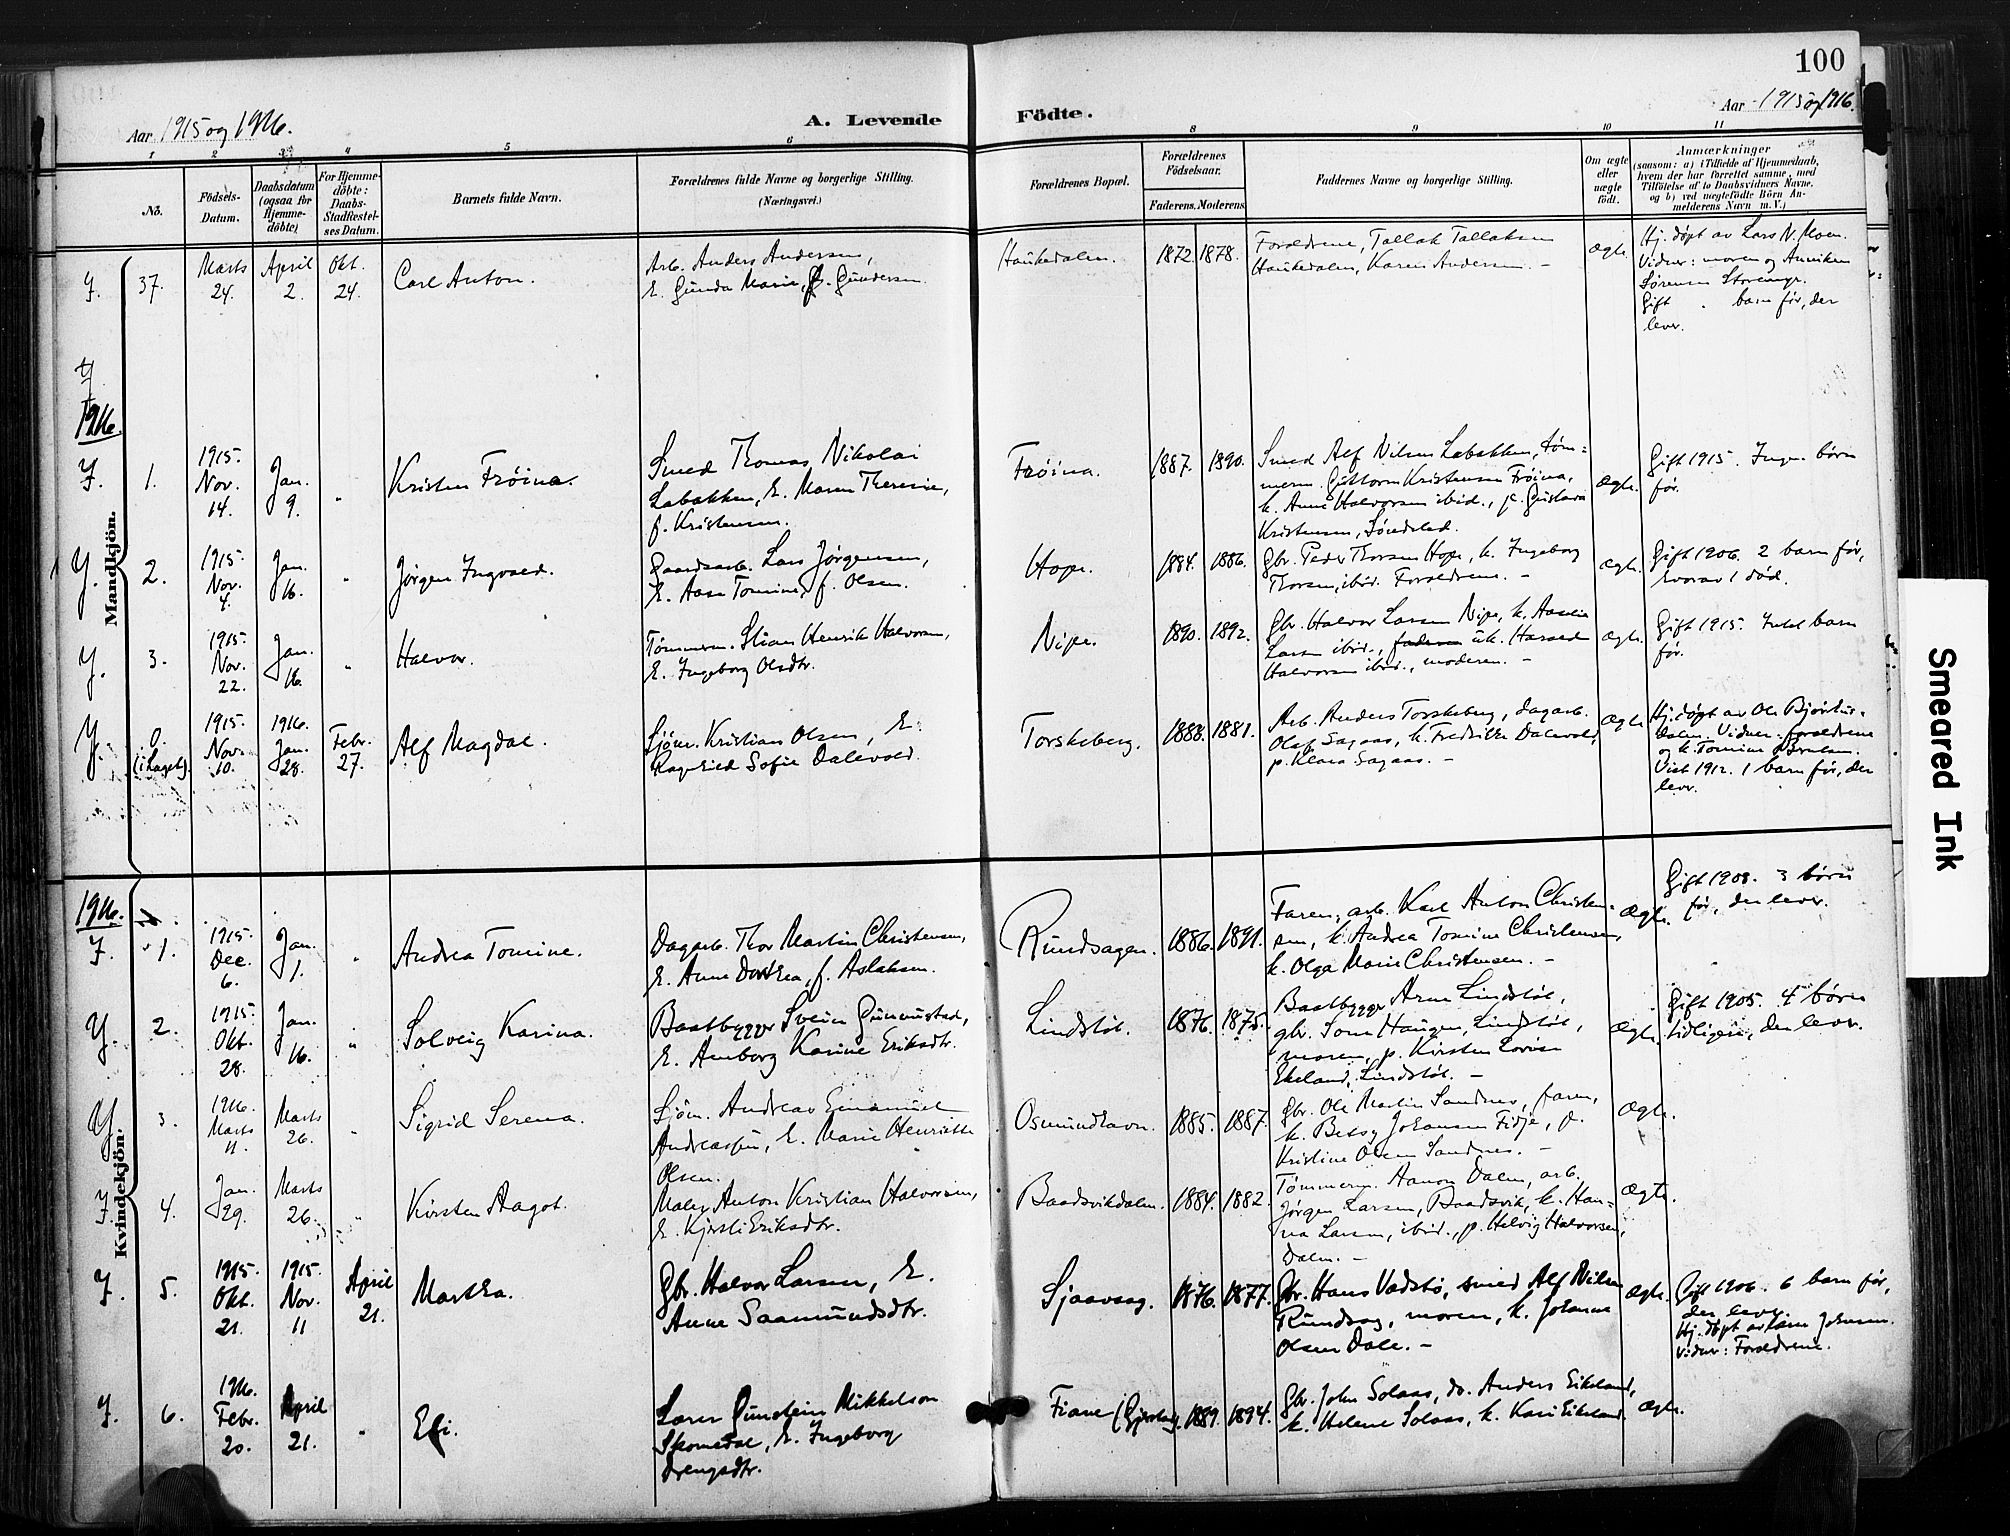 100
Aar 1915 og 1916.
A. Levende
Födte.
Aar 1915 og 1916.
1 2 3 4 5 6 8 9 10 11
No.
Födsels-Datum.
Daabsdatum (ogsaa for Hjemme-döbte)
For Hjemme-döbte: Daabs-Stadfæstel-ses Datum.
Barnets fulde Navn.
Forældrenes fulde Navne og borgerlige Stilling.
(Næringsvei.)
Forældrenes Bopæl.
Forældrenes Födselsaar.
Faderens. Moderens.
Faddernes Navne og borgerlige Stilling.
Om ægte eller uægte födt.
Anmærkninger
(saasom: a) i Tilfælde af Hjemmedaab,
hvem der har forrettet samme, med
Tilföielse af to Daabsvidners Navne,
og b) ved uægtefödte Börn An-
melderens Navn m. V.)
Mandkjön.
J. 37. Marts 24. April 2. Okt. 24. Carl Anton.
Arb. Anders Andersen,
E. Gunda Marie, f. Gundersen
Haukedalen. 1872. 1878.
Forældrene, Tallak Tallaksen
Haukedalen, Karen Andersen. –
ægte.
Hj. døpt av Lars N. Moen.
Vidner: moren og Anniken
Sørensen
Gift barn før, der
lever.
1916.
J. 1. 1915. Nov. 14. Jan. 9. " Kristen Frøina.
Smed Thomas Nikolai
Labakken, E. Maren Theresie,
f. Kristensen.
Frøina. 1887. 1890.
Smed Alf Nilsen Labakken, tøm-
merm. Guttorm Kristensen Frøina,
k. Anne Halvorsen ibid., p. Gustava
Kristensen, Søndeled.
ægte.
Gift 1915. Ingen børn
før.
J. 2. 1915. Nov. 4. Jan. 16. " Jørgen Ingvald.
Gaardsarb. Lars Jørgensen,
E. Aase Tomine, f. Olsen.
Hope. 1884. 1886.
Gbr. Peder Thorsen Hope, k. Ingeborg
Thorsen, ibid. Forældrene. –
ægte.
Gift 1906. 2 barn før,
hvorav 1 død.
J. 3. 1915. Nov. 22. Jan. 16. " Halvor.
Tømmerm. Stian Henrik Halvorsen,
E. Ingeborg Olsdtr.
Nipe. 1890. 1892.
Gbr. Halvor Larsen Nipe, k. Aaselie
Larsen ibid., faderen uk. Harald
Halvorsen ibid., moderen. –
ægte.
Gift 1915. Intet barn
før.
J. 0. 1915. Nov. 10. 1916. Jan. 28. Febr. 27. Alf Magdal.
Sjøm. Kristian Olsen, E.
Ragnhild Sofie Dalevold.
Torskeberg. 1888. 1881.
Arb. Anders Torskeberg, dagarb.
Olaf Sagaas, k. Fredrikke Dalevold,
p. Klara Sagaas. –
ægte
Hj. døpt av Ole Bjorstur-
dalen. Vidner: forældrene
og k. Tomine
Viet 1912. 1 barn før, der
lever.
Kvindekjön.
1916.
J. 1. 1915. Dec. 6. Jan. 1. " Andrea Tomine.
Dagarb. Thor Martin Christensen,
E. Anne Dorthea, f. Aslaksen.
Rundsagen. 1886. 1891.
Faren, arb. Karl Anton Christen-
sen, k. Andrea Tomine Christensen,
k. Olga Marie Christensen. –
ægte.
Gift 1908. 3 børn
før, den lever.
J. 2. 1915. Okt. 28. Jan. 16. " Solveig Karina.
Baatbygger Svein Gunnustad,
E. Amborg Karine Eriksdtr.
Lindstøl. 1876. 1875.
Baatbygger Arne Lindstøl,
gbr. Sone Haugen, Lindstøl,
moren, p. Kirsten
Ekeland, Lindstøl. –
ægte.
Gift 1905. 4 børn
tidligere, den lever.
J 3. 1916. Marts 11. Marts 26. " Sigrid Serena.
Sjøm. Andreas Emanuel
Andreassen, E. Marie Henriette
Olsen.
Osmundhavn. 1885. 1887.
Gbr. Ole Martin Sandnes, faren,
k. Betsy Johansen Fidje, p.
Kristine Olsen Sandnes. –
ægte.
J. 4. Jan. 29. Marts 26. " Kirsten Aagot.
Maler Anton Kristian Halvorsen,
E. Kjersti Eriksdtr.
Baadsvikdalen. 1884. 1882.
Tømmerm. Aanon Dalen, arb.
Jørgen Larsen, Baadsvik, k. Han-
na Larsen, ibid., p. Helvig Halvorsen,
Dalen. –
ægte.
J. 5. 1915. Okt. 21. 1915. Nov. 11 April 21. Martha.
Gbr. Halvor Larsen, E.
Anne Saamundsdtr.
Sjaavaag. 1876. 1877.
Gbr. Hans Vadstø, smed Alf Nilsen
Rundsag, moren, k. Johanne
Olsen Dale. –
ægte.
Gift 1906. 6 barn før,
der lever.
Hj. døpt av Johnsen.
Vidner: Forældrene.
J. 6. 1916. Febr. 20. April 21. " Eli.
Lars Gunstein Mikkelson
Skomedal, E. Ingeborg
Drengsdtr.
Fiane (Gjerstad). 1889. 1894.
Gbr. John Solaas, do. Anders Eikeland,
k. Helene Solaas, k. Kari Eikeland.
ægte.
Smeared Ink